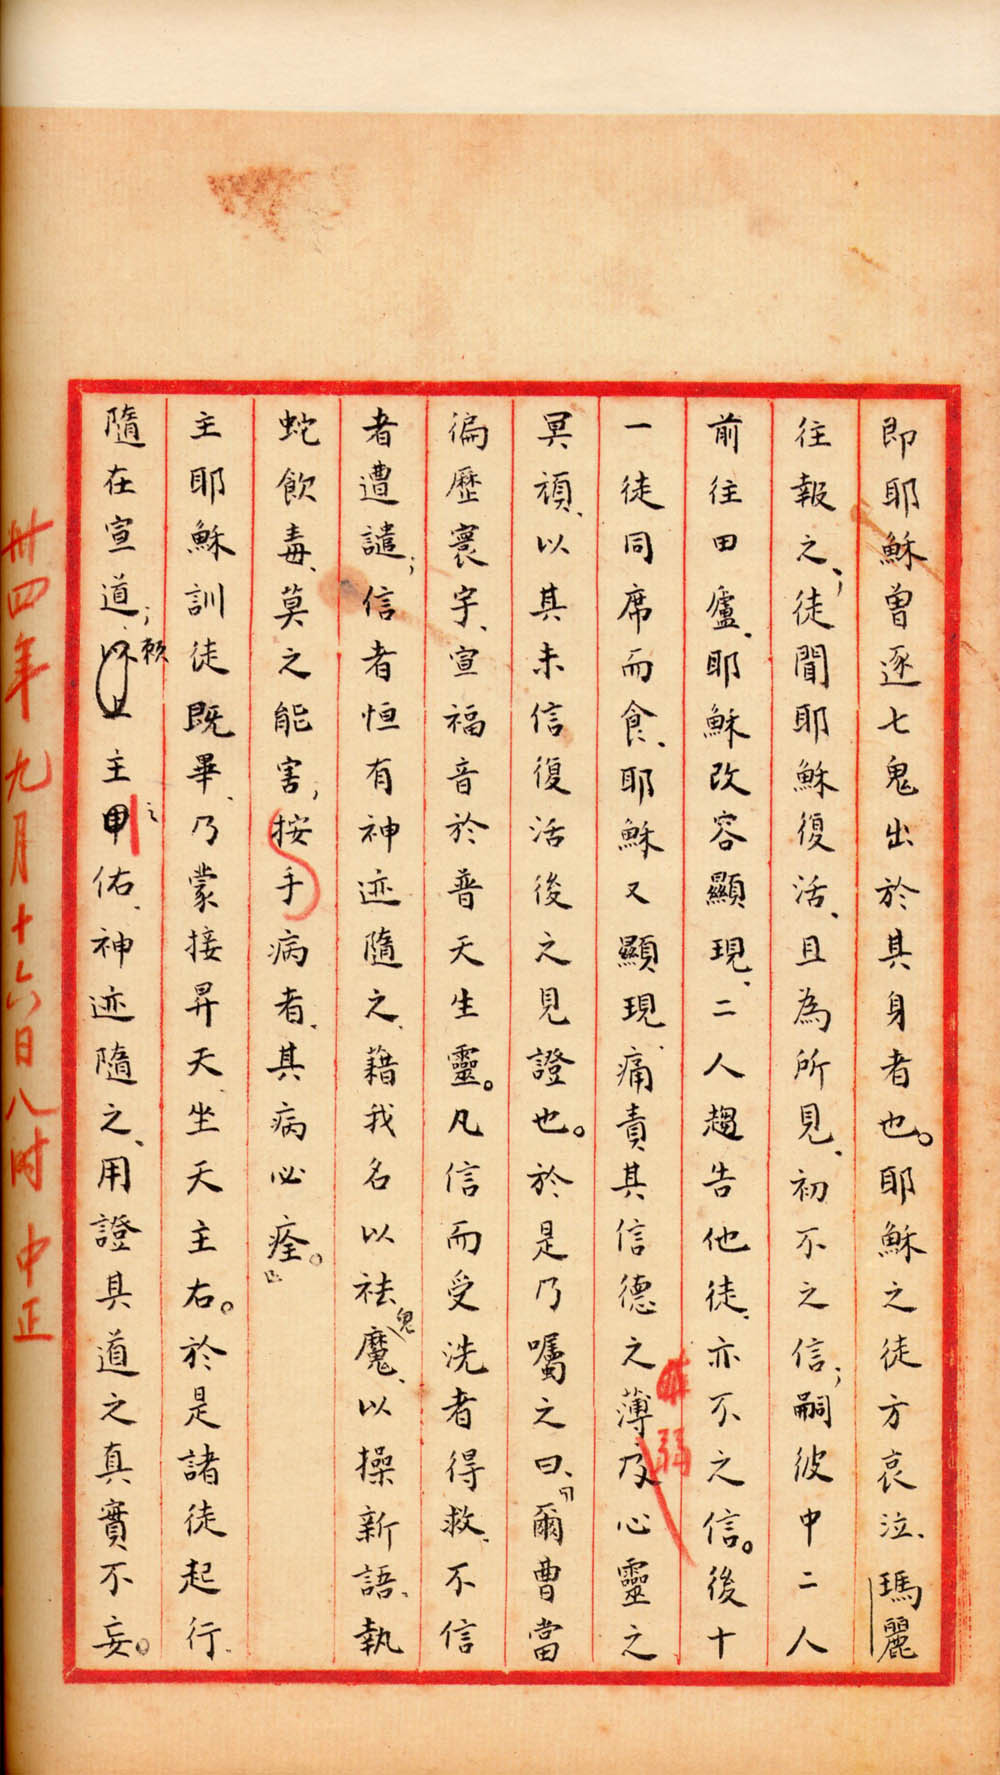 即耶穌曾逐七鬼出於其身者也。耶穌之徒方哀泣、瑪麗
往報之；徒聞耶穌復活、且為所見、初不之信；嗣彼中二人
前往田廬、耶穌改容顯現、二人趨告他徒、亦不之信。後十
一徒同席而食、耶穌又顯現、痛責其信德之薄及心靈之
弱
冥頑、以其未信復活後之見證也。於是乃囑之曰、「爾曹當
徧歷寰宇、宣福音於普天生靈。凡信而受洗者得救、不信
者遭譴；信者恒有神迹隨之、藉我名以祛魔、以操新語、執
鬼
蛇飲毒、莫之能害；按手病者、其病必痊。」
主耶穌訓徒既畢、乃蒙接昇天、坐天主右。於是諸徒起行、
隨在宣道；主佑、神迹隨之、用證其道之真實不妄。
賴
之
卅四年九月十六日八時 中正